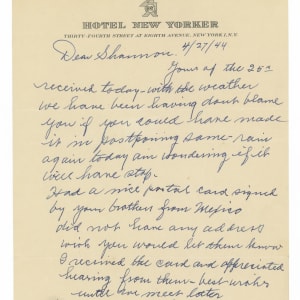 HOTEL NEW YORKER
THIRTY-FOURTH STREET AT EIGHTH AVENUE, NEW YORK 1, N.Y.
4/27/44
Dear Shannon:
Yours of the 25th
received today - with the weather
we have been having dont blame
you if you could have made
it in postponing same - rain
again today am wondering if it
will have stop.
Had a nice postal card signed
by your brothers from Mexico
did not have any address
wish you would let them know
I received the card and appreciated
hearing from them - best wishes
until we meet later